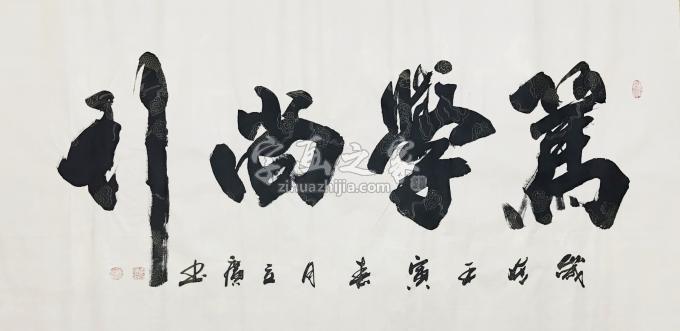 篤學尚行
歲時壬寅春月立廣书
字画之家
zihuazhijia.com